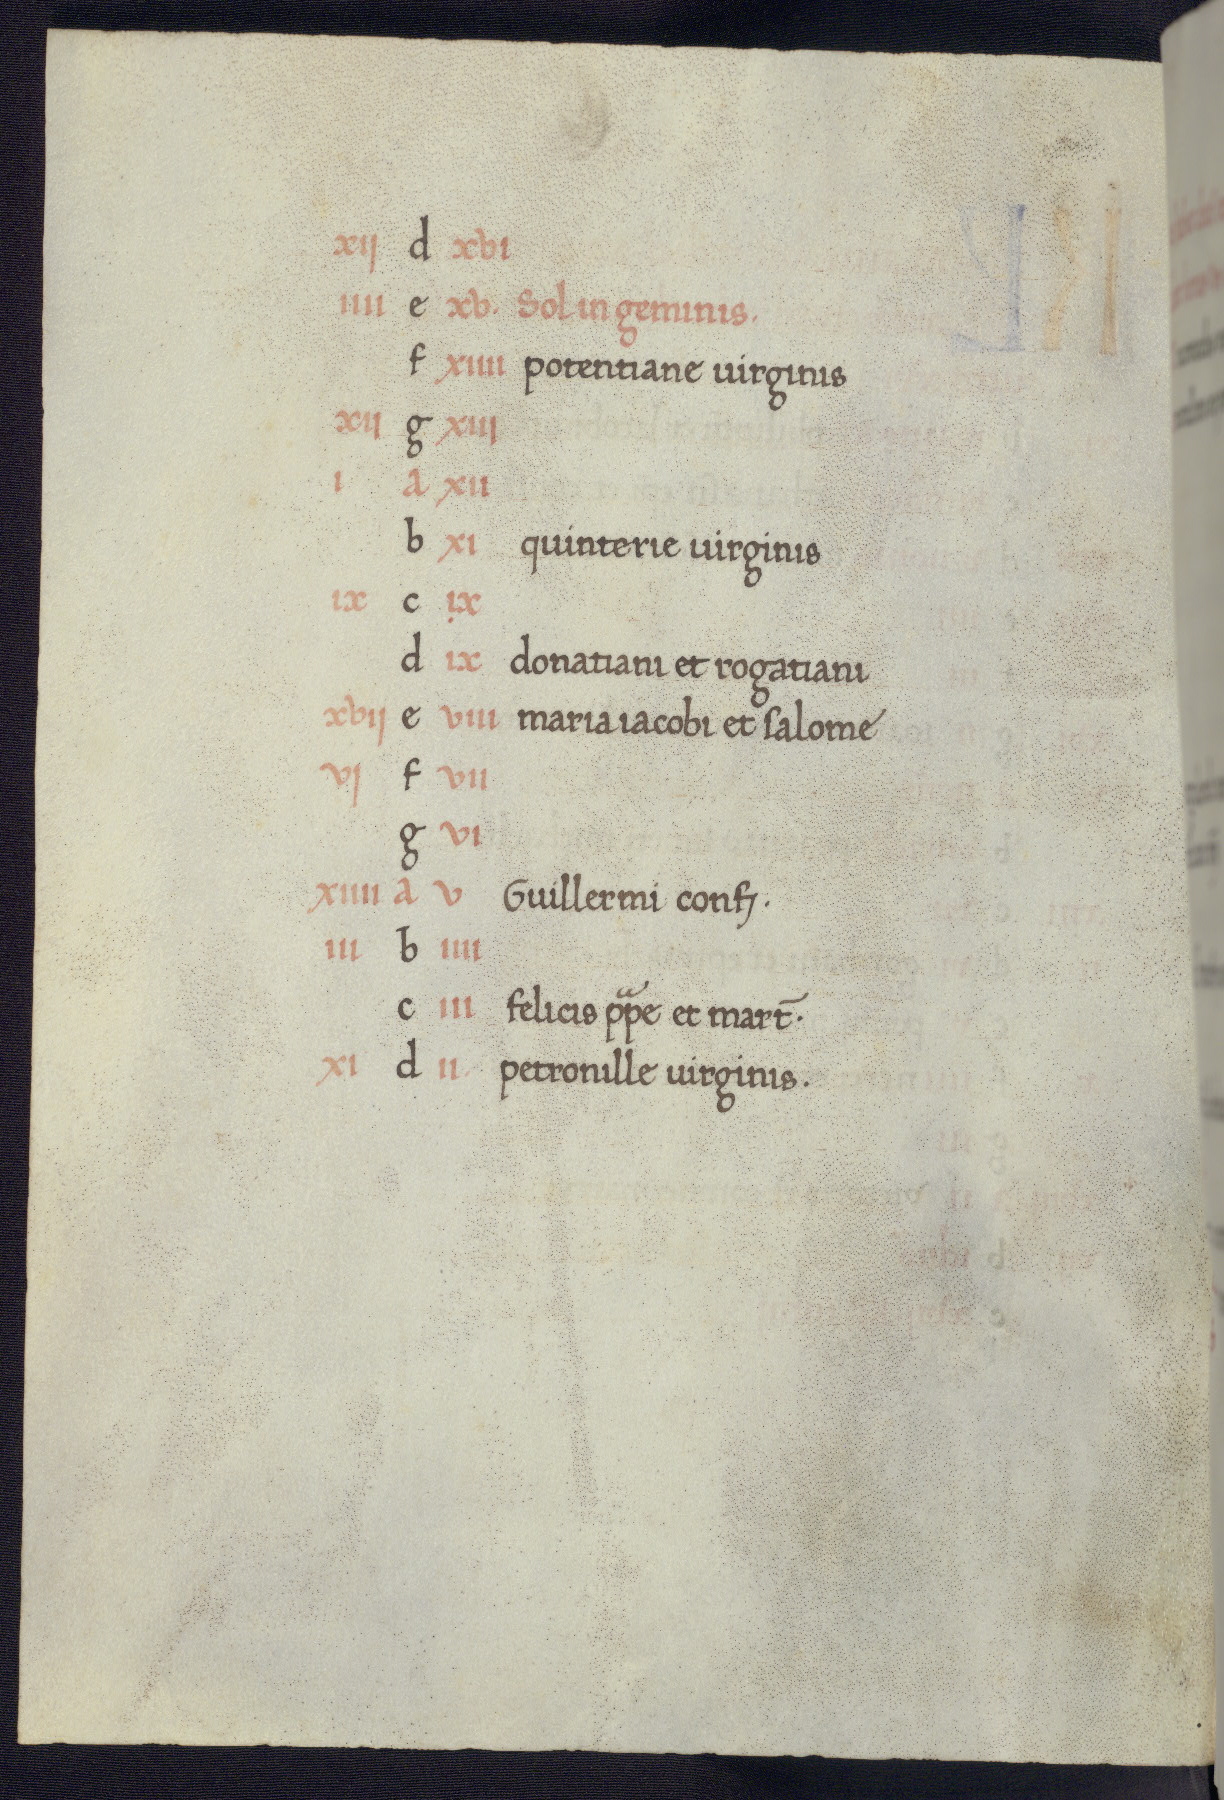 xij d xvi
iiii e xv. Sol in geminis.
f xiiii potentiane uirginis
xij g xiij
i a xii
b xi quinterie uirginis
ix c ix
d ix donatiani et rogatiani
xvij e viii maria iacobi et salome
vj f vii
g vi
xiiii a v Guillermi conf.
iii b iiii
c iii felicis ppe et mart.
xi d ii petronille uirginis.